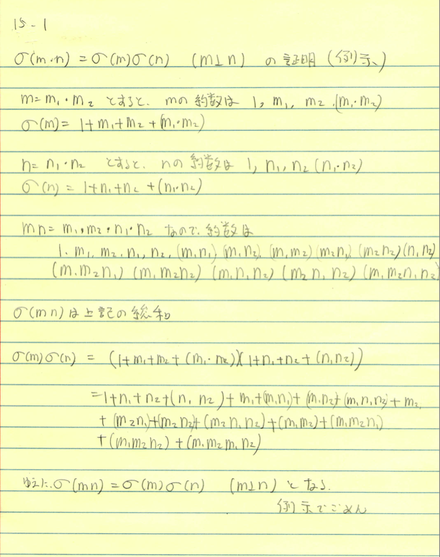 15-1
σ(m·n) = σ(m)σ(n) (m⊥n) の証明(例示)
m=m₁·m₂ とすると、mの約数は 1, m₁, m₂, (m₁·m₂)
σ(m) = 1+m₁+m₂+(m₁·m₂)
n=n₁·n₂ とすると、nの約数は 1, n₁, n₂ (n₁·n₂)
σ(n) = 1+n₁+n₂+(n₁·n₂)
mn = m₁·m₂·n₁·n₂ なので、約数は
1. m₁, m₂, n₁, n₂, (m₁n₁) (m₁n₂) (m₁m₂) (m₂n₁) (m₂n₂) (n₁n₂)
(m₁m₂n₁) (m₁m₂n₂) (m₁n₁n₂) (m₂n₁n₂) (m₁m₂n₁n₂)
σ(mn)は上記の総和
σ(m)σ(n) = (1+m₁+m₂+(m₁·m₂))(1+n₁+n₂+(n₁n₂))
=1+n₁+n₂+(n₁n₂)+m₁+(m₁n₁)+(m₁n₂)+(m₁n₁n₂)+m₂
+(m₂n₁)+(m₂n₂)+(m₂n₁n₂)+(m₁m₂)+(m₁m₂n₁)
+(m₁m₂n₂)+(m₁m₂n₁n₂)
ゆえに、σ(mn) = σ(m)σ(n) (m⊥n) となる
例示でごめん